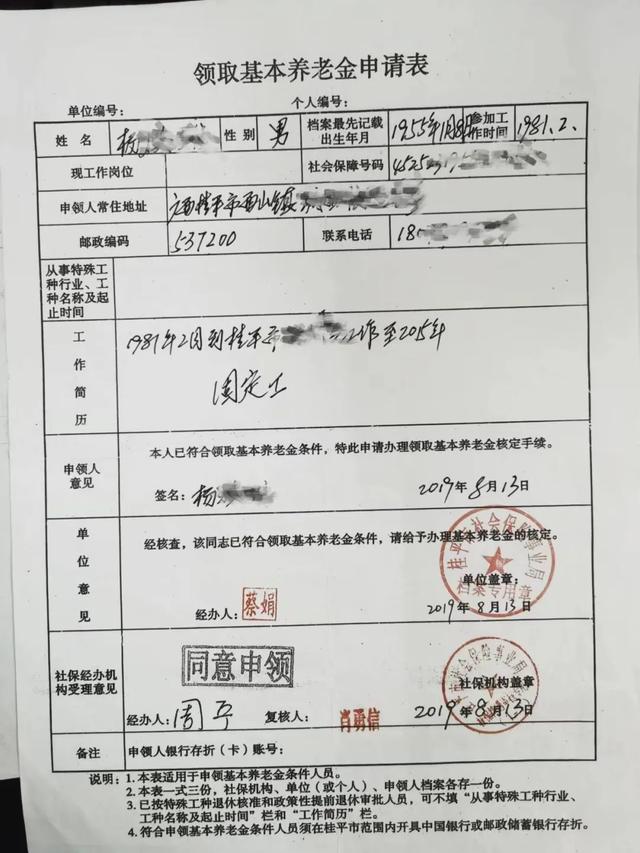 领取基本养老金申请表
单位编号：
个人编号：
姓名 杨 性别 男 档案最先记载出生年月 1955年1月8日 参加工作时间 1981.2.
现工作岗位 社会保障号码 45252
申领人常住地址 广西桂平市西山镇
邮政编码 537200 联系电话 18
从事特殊工
种行业、工
种名称及起
止时间
工作简历
1981年2月到桂平市 工作至2015年
固定工
申领人
意见
本人已符合领取基本养老金条件，特此申请办理领取基本养老金核定手续。
签名：杨 2019年8月13日
单位意见
经核查，该同志已符合领取基本养老金条件，请给予办理基本养老金的核定。
桂平市社会保险事业局
档案专用章
单位盖章：
经办人：蔡娟 2019年8月13日
社保经办机
构受理意见
同意申领
社保机构盖章
经办人：周平 复核人：肖勇信 2019年8月13日
备注 申领人银行存折（卡）账号：
说明：1. 本表适用于申领基本养老金条件人员。
2. 本表一式三份，社保机构、单位（或个人）、申领人档案各存一份。
3. 已按特殊工种退休核准和政策性提前退休审批人员，可不填“从事特殊工种行业、
工种名称及起止时间”栏和“工作简历”栏。
4. 符合申领基本养老金条件人员须在桂平市范围内开具中国银行或邮政储蓄银行存折。